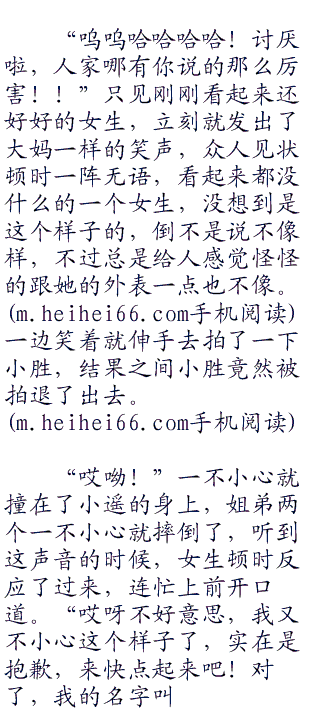 “呜呜哈哈哈哈！讨厌
啦，人家哪有你说的那么厉
害！！”只见刚刚看起来还
好好的女生，立刻就发出了
大妈一样的笑声，众人见状
顿时一阵无语，看起来都没
什么的一个女生，没想到是
这个样子的，倒不是说不像
样，不过总是给人感觉怪怪
的跟她的外表一点也不像。
(m.heihei66.com手机阅读)
一边笑着就伸手去拍了一下
小胜，结果之间小胜竟然被
拍退了出去。
(m.heihei66.com手机阅读)
“哎呦！”一不小心就
撞在了小遥的身上，姐弟两
个一不小心就摔倒了，听到
这声音的时候，女生顿时反
应了过来，连忙上前开口
道。“哎呀不好意思，我又
不小心这个样子了，实在是
抱歉，来快点起来吧！对
了，我的名字叫